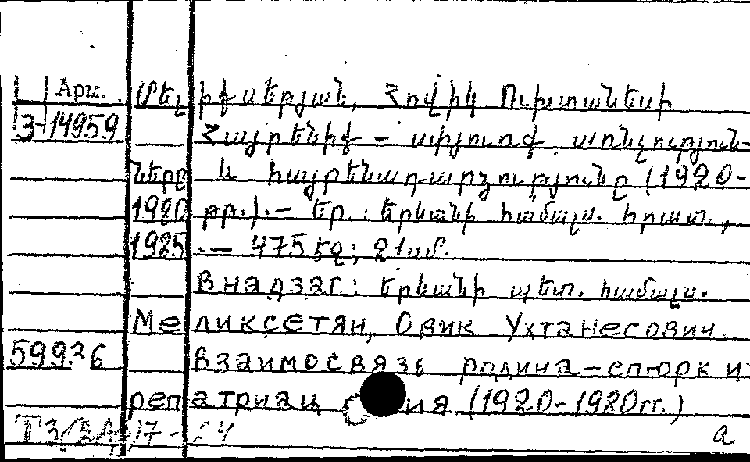 Арм. Մելիքսեթյան, Հովիկ Ուխտանեսի
3-14959 Հայրենիք – սփյուռք առնչություն-
ները և հայրենադարձությունը (1920-
1980 թթ.).— Եր.: Երևանի համալս. հրատ.,
1985.— 475 էջ; 21սմ.
В надзаг: Երևանի պետ. համալս.
Меликсетян, Овик Ухтанесович.
59926 Взаимосвязь родина-спюрк и
репатриация (1920-1980гг.)
а